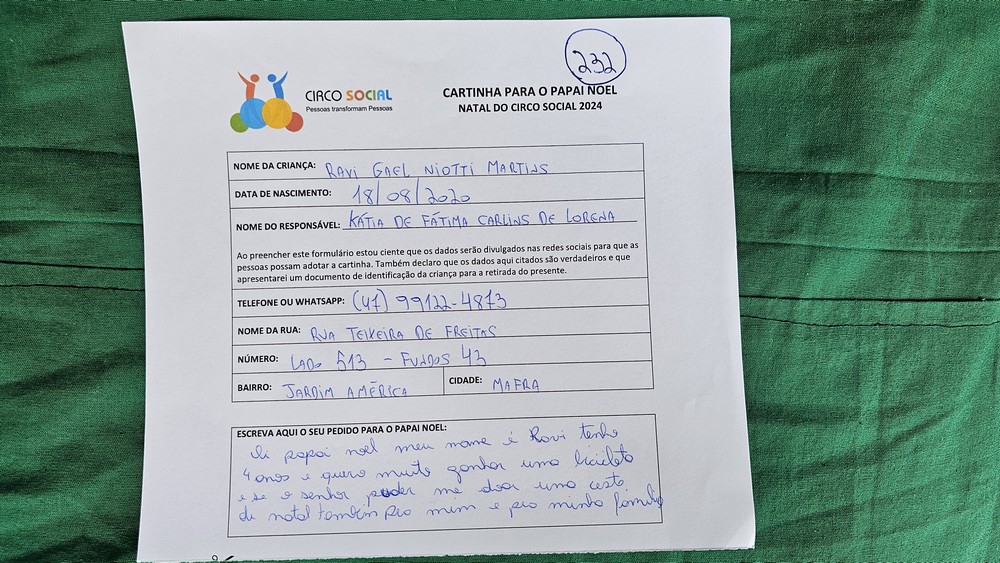 232
CIRCO SOCIAL
Pessoas transformam Pessoas
CARTINHA PARA O PAPAI NOEL
NATAL DO CIRCO SOCIAL 2024
NOME DA CRIANÇA: RAVI GAEL NIOTTI MARTINS
DATA DE NASCIMENTO: 18/08/2020
NOME DO RESPONSÁVEL: KÁTIA DE FÁTIMA CARLINS DE LORENA
Ao preencher este formulário estou ciente que os dados serão divulgados nas redes sociais para que as
pessoas possam adotar a cartinha. Também declaro que os dados aqui citados são verdadeiros e que
apresentarei um documento de identificação da criança para a retirada do presente.
TELEFONE OU WHATSAPP: (47) 99122-4873
NOME DA RUA: RUA TEIXEIRA DE FREITAS
NÚMERO: LADO 513 - FUNDOS 43
BAIRRO: JARDIM AMÉRICA CIDADE: MAFRA
ESCREVA AQUI O SEU PEDIDO PARA O PAPAI NOEL:
Oi papai noel meu nome é Ravi tenho
4 anos e quero muito ganhar uma bicicleta
e se o senhor puder me doar uma cesta
de natal também pro mim e pro minha família